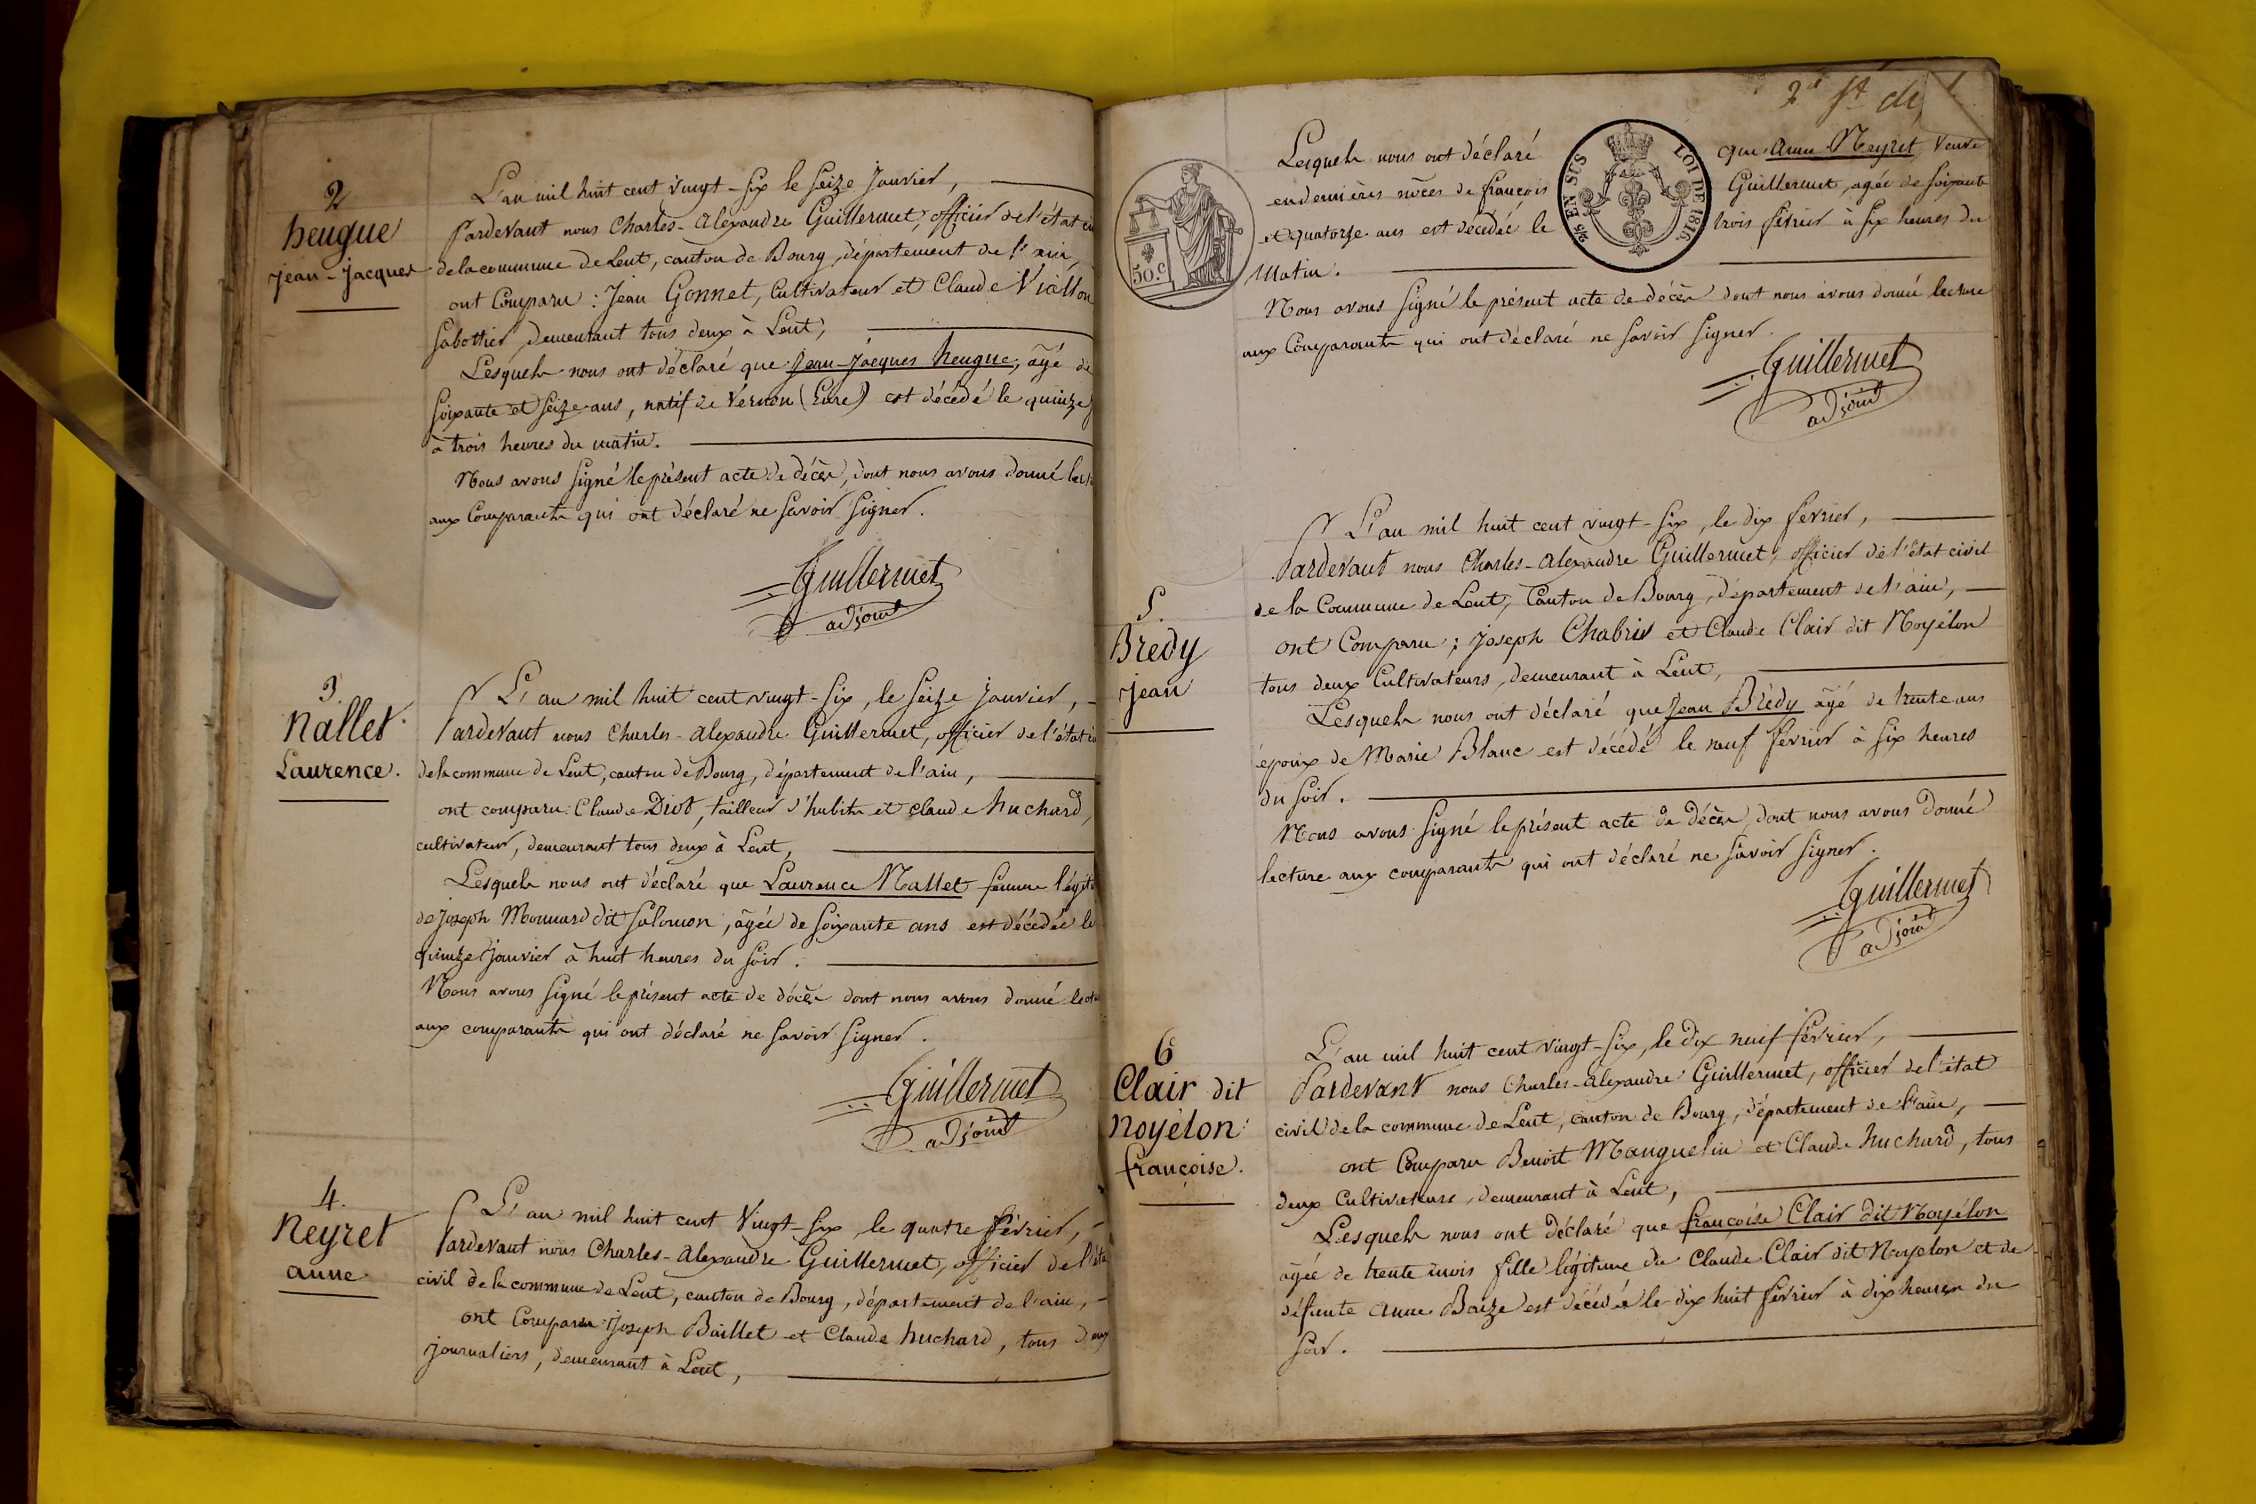 2
heugue
Jean-Jacques
L'an mil huit cent vingt-six le seize janvier,
Pardevant nous Charles-alexandre Guillermet, officier de l'état ci
de la commune de Lent, canton de Bourg, département de l'ain,
ont Comparu : Jean Gonnet, Cultivateur et Claude Viallon
Sabottier, demeurant tous deux à Lent,
Lesquels nous ont déclaré que Jean-Jacques heugue, âgé de
soixante et seize ans, natif de Vernon (Eure) est décédé le quinze
à trois heures du matin.
Nous avons signé le présent acte de décès, dont nous avons donné lect
aux Comparants qui ont déclaré ne savoir signer.
Guillermet
adjoint
3.
Nallet
Laurence.
L'an mil huit cent vingt-six, le seize janvier,
Pardevant nous Charles-alexandre Guillermet, officier de l'état ci
de la commune de Lent, canton de Bourg, département de l'ain,
ont comparu : Claude Diot, tailleur d'habits et Claude huchard,
cultivateur, demeurant tous deux à Lent,
Lesquels nous ont déclaré que Laurence Nallet femme légit
de Joseph Monnard dit Salomon, âgée de soixante ans est décédée le
quinze janvier à huit heures du soir.
Nous avons signé le présent acte de décès dont nous avons donné lect
aux comparants qui ont déclaré ne savoir signer.
Guillermet
adjoint
4.
Neyret
anne
L'an mil huit cent vingt-six, le quatre février,
Pardevant nous Charles-alexandre Guillermet, officier de l'éta
civil de la commune de Lent, canton de Bourg, département de l'ain,
ont Comparu Joseph Baillet et Claude huchard, tous deux
journaliers, demeurant à Lent,
50.c
25 EN SUS
LOI DE 1816.
Lesquels nous ont déclaré que anne Neyret, veuve
en dernières nôces de françois Guillermet, agée de soixante
et quatorze ans est décédée le trois février à six heures du
matin.
Nous avons signé le présent acte de décès dont nous avons donné lecture
aux Comparants qui ont déclaré ne savoir signer.
Guillermet
adjoint
5.
Bredy
jean
L'an mil huit cent vingt-six, le dix février,
Pardevant nous Charles-alexandre Guillermet, officier de l'état civil
de la Commune de Lent, Canton de Bourg, département de l'ain,
ont Comparu ; Joseph Chabris et Claude Clair dit Noyélon
tous deux Cultivateurs, demeurant à Lent,
Lesquels nous ont déclaré que Jean Brédy âgé de trente ans
époux de Marie Blanc est décédé le neuf février à six heures
du soir.
Nous avons signé le présent acte de décès dont nous avons donné
lecture aux comparants qui ont déclaré ne savoir signer.
Guillermet
adjoint
6
Clair dit
Noyélon
françoise.
L'an mil huit cent vingt-six, le dix neuf février,
Pardevant nous Charles-alexandre Guillermet, officier de l'état
civil de la commune de Lent, canton de Bourg, département de l'ain,
ont Comparu Benoit Manguelin et Claude huchard, tous
deux Cultivateurs, demeurant à Lent,
Lesquels nous ont déclaré que françoise Clair dit Noyélon
âgée de trente mois fille légitime de Claude Clair dit Noyélon et de
défunte anne Boize est décédée le dix huit février à dix heures du
soir.